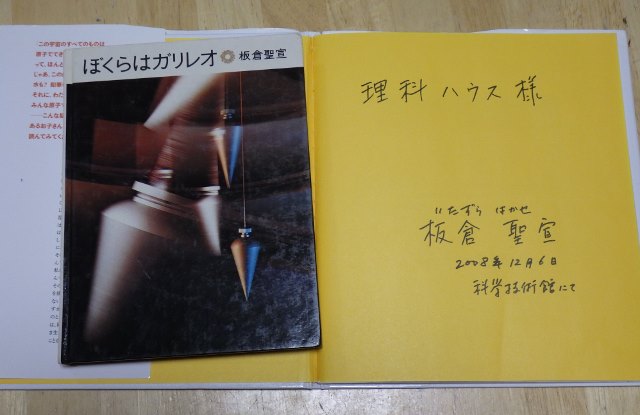 この宇宙のすべてのものは
原子ででき
って、ほんと
じゃあ、この
水も？鉛筆
それに、わた
みんな原子で
――こんな
あるお子さん
読んでみてく
ぼくらはガリレオ 板倉聖宣
理科ハウス様
いたずら はかせ
板倉 聖宣
2008年12月6日
科学技術館にて